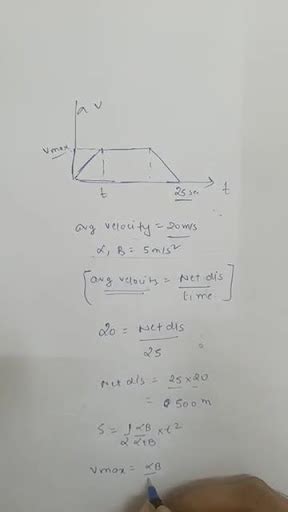 a v
vmax
t
25 sec
t
avg velocity = 20 m/s
α, B = 5 m/s²
[avg velocity = Net dis / time]
20 = Net dis / 25
Net dis = 25 × 20
= 500 m
S = 1/2 αB/α+B × t²
Vmax = αB